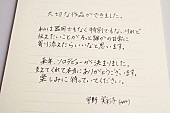 大切な作品ができました。
私は器用でもなく特別でもない、けれど
伝えたいことが、今と誰かの日常に
寄り添えたらいいなと思います。
来年、ソロデビューが決まりました。
支えてくれて本当にありがとうございます。
楽しみに待っていてください。